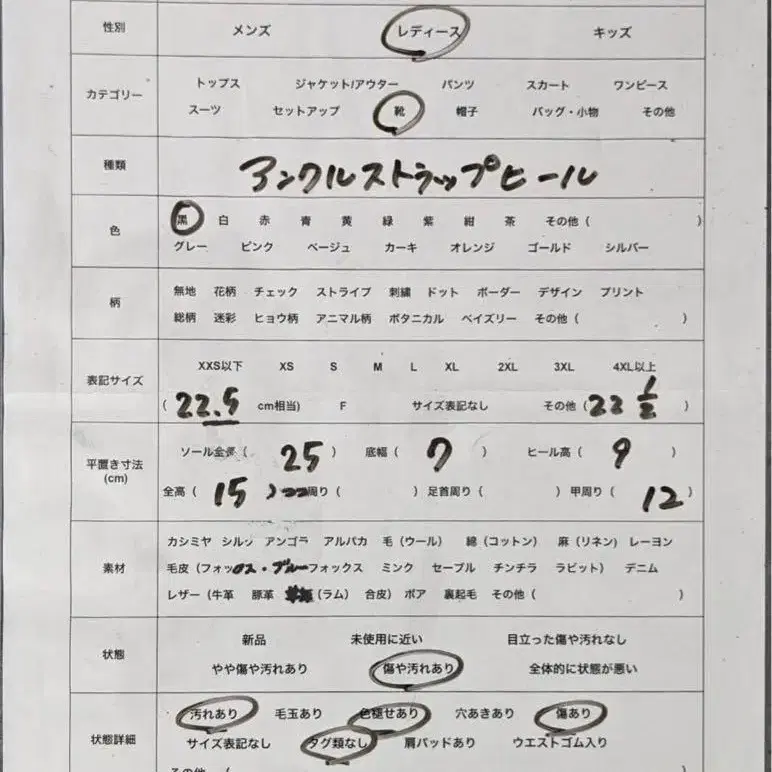 性別 メンズ レディース キッズ
カテゴリー トップス ジャケット/アウター パンツ スカート ワンピース
スーツ セットアップ 靴 帽子 バッグ・小物 その他
種類 アンクルストラップヒール
色 黒 白 赤 青 黄 緑 紫 紺 茶 その他 ( )
グレー ピンク ベージュ カーキ オレンジ ゴールド シルバー
柄 無地 花柄 チェック ストライプ 刺繍 ドット ボーダー デザイン プリント
総柄 迷彩 ヒョウ柄 アニマル柄 ボタニカル ペイズリー その他 ( )
表記サイズ XXS以下 XS S M L XL 2XL 3XL 4XL以上
( 22.5 cm相当) F サイズ表記なし その他 ( 22 1/2 )
平置き寸法 (cm) ソール全長 ( 25 ) 底幅 ( 7 ) ヒール高 ( 9 )
全高 ( 15 ) 周り ( ) 足首周り ( ) 甲周り ( 12 )
素材 カシミヤ シルク アンゴラ アルパカ 毛 (ウール) 綿 (コットン) 麻 (リネン) レーヨン
毛皮 (フォックス・ブルーフォックス ミンク セーブル チンチラ ラビット) デニム
レザー (牛革 豚革 (ラム) 合皮) ボア 裏起毛 その他 ( )
状態 新品 未使用に近い 目立った傷や汚れなし
やや傷や汚れあり 傷や汚れあり 全体的に状態が悪い
状態詳細 汚れあり 毛玉あり 色褪せあり 穴あきあり 傷あり
サイズ表記なし タグ類なし 肩パッドあり ウエストゴム入り
その他 (